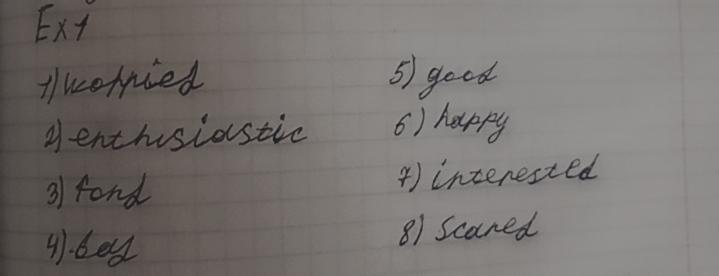 Ex 1
1) worried
2) enthusiastic
3) fond
4) bad
5) good
6) happy
7) interested
8) scared